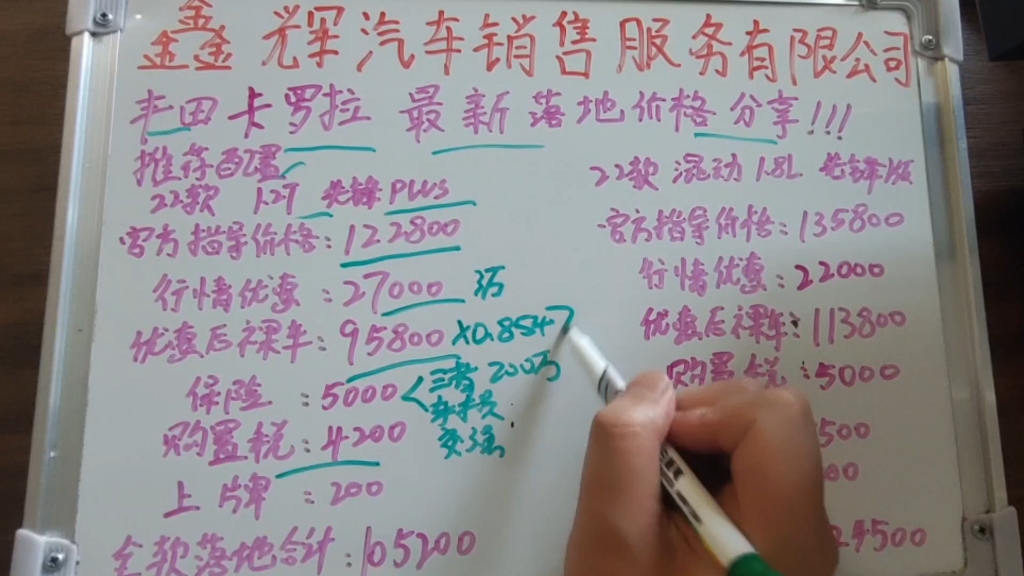 鑫辉汽车销售服务有限公司
丰田卡罗拉 最新落地价格分享!!!
推荐配置
22款 1.2T 先锋PLUS
官方指导价格:122800
行情优惠:27000 万
优惠后裸车:95800 x0.8547
保险:5000 三者200万
车损
交强
购置税:4200
上牌:200
全款落地合计:105200
22款 混动 1.8L 先锋版
官方指导价格:135800
行情优惠:22000
优惠后裸车:113800
购置税:5000
500
00
24500